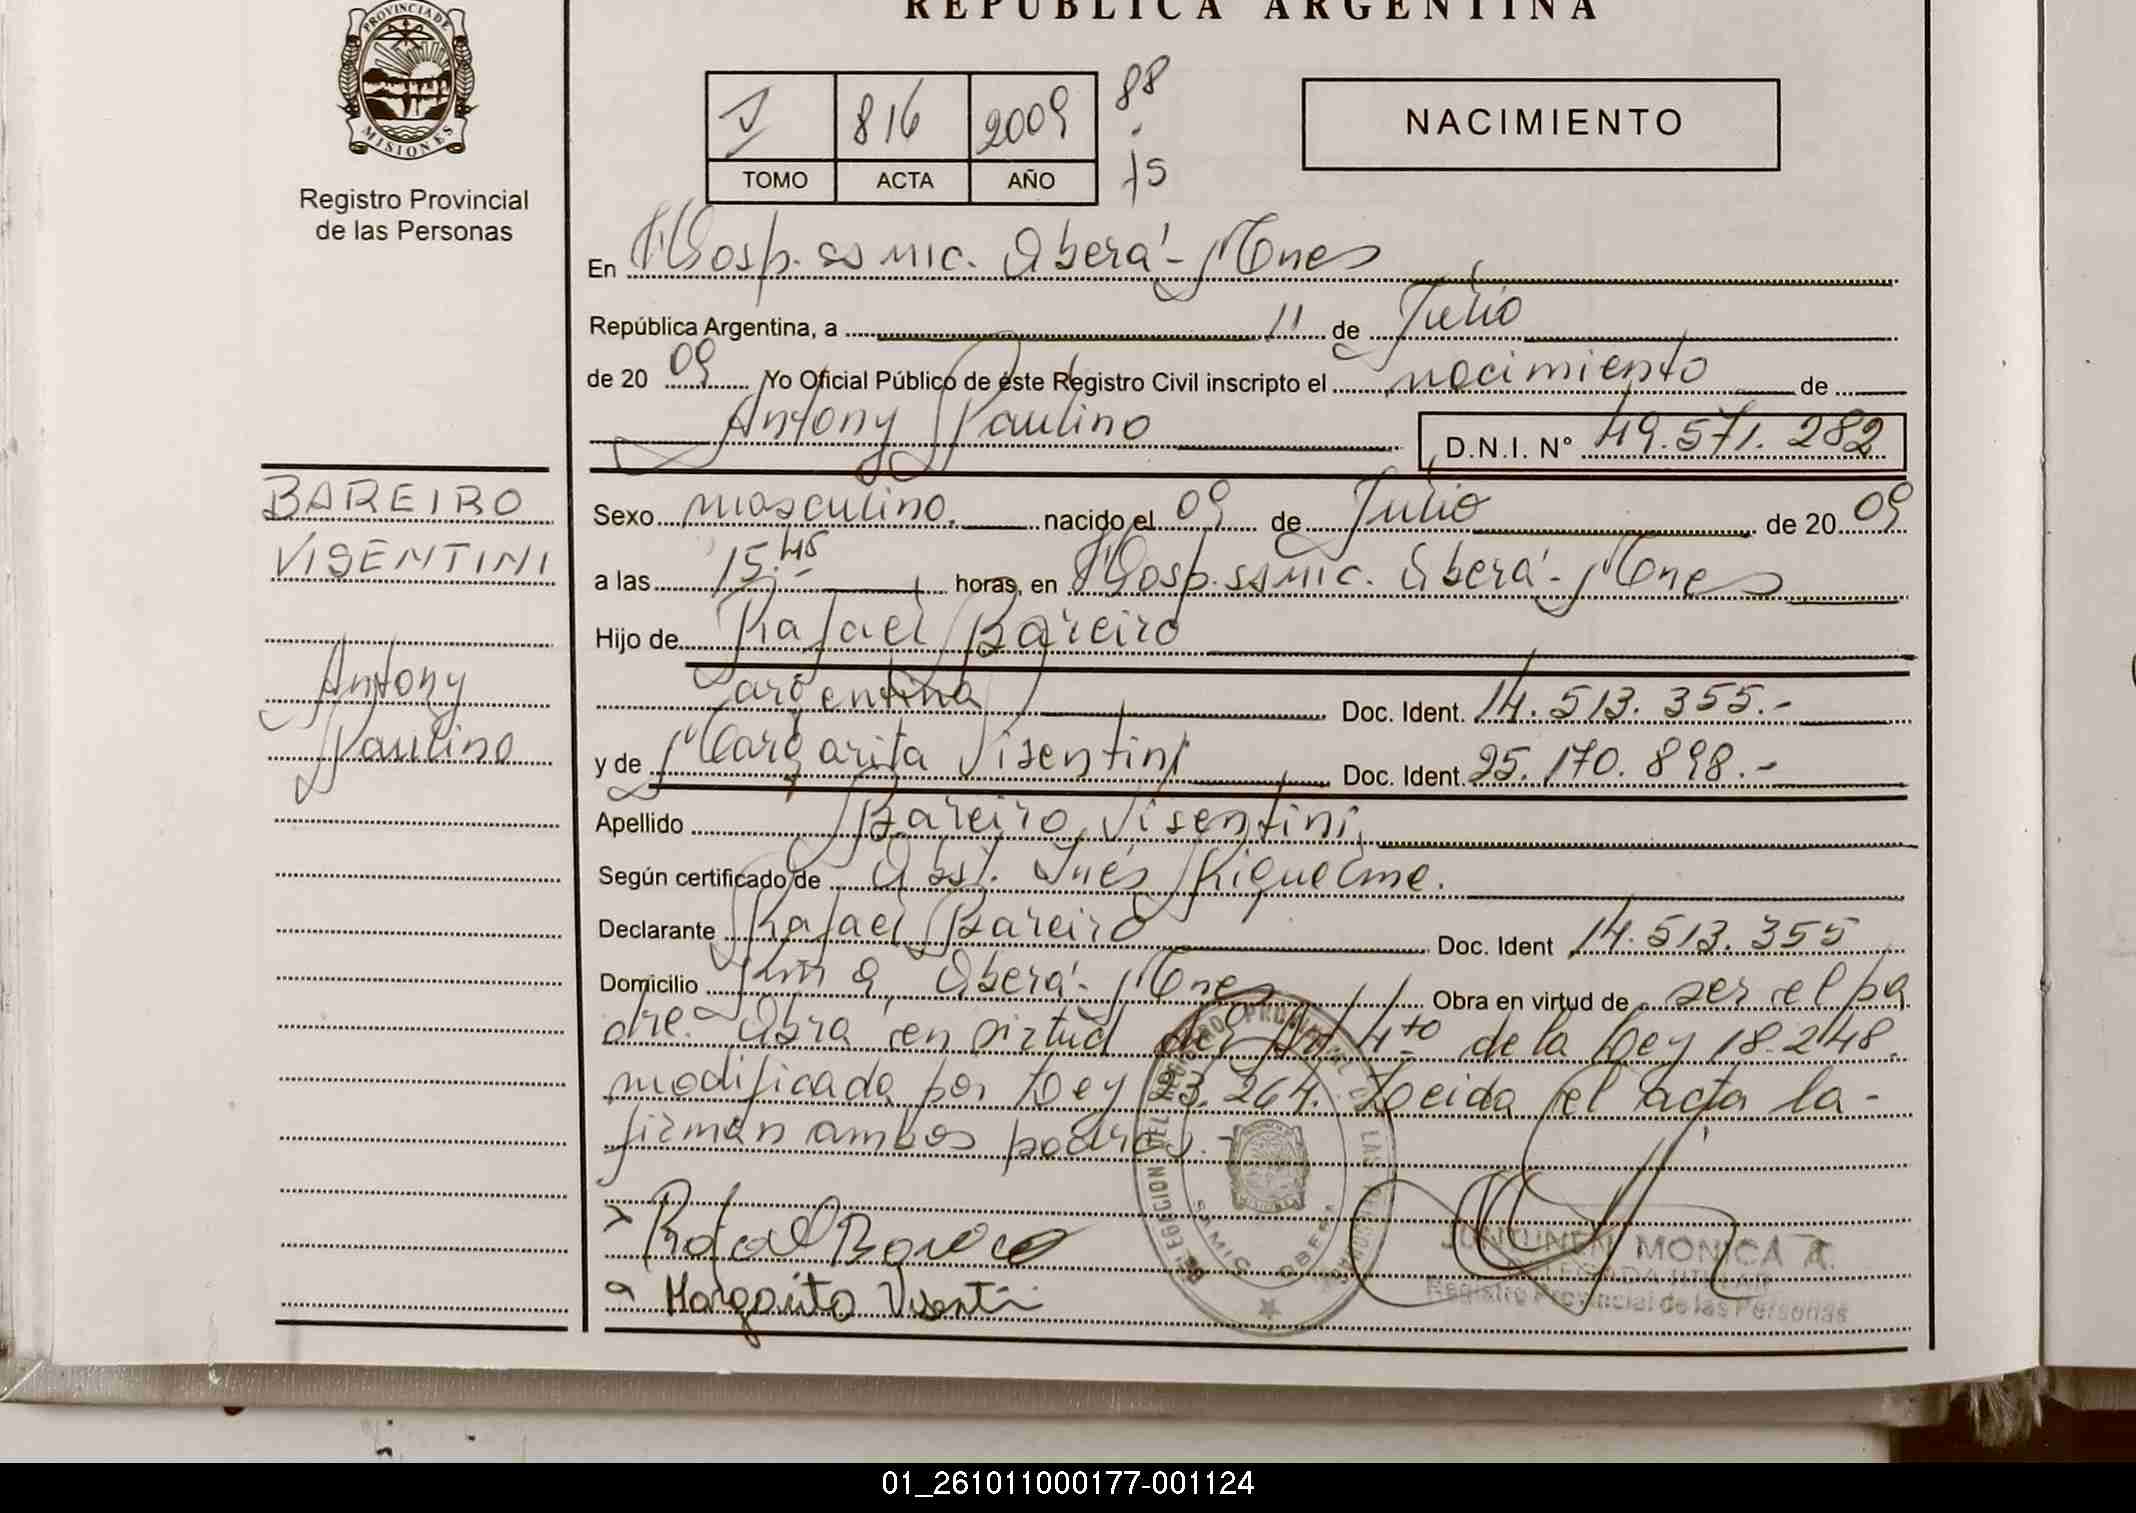 REPÚBLICA ARGENTINA
PROVINCIA DE
MISIONES
Registro Provincial
de las Personas
I 816 2009 88
TOMO ACTA AÑO 75
NACIMIENTO
En Hosp. ss mic. Oberá - Mnes
República Argentina, a 11 de Julio
de 20 09 Yo Oficial Público de éste Registro Civil inscripto el nacimiento de
Antony Paulino D.N.I. N° 49.571.282
BAREIRO
VISENTINI
Antony
Paulino
Sexo masculino. nacido el 09 de Julio de 20 09
a las 15:45 horas, en Hosp. ss mic. Oberá - Mnes
Hijo de Rafael Bareiro
argentina Doc. Ident. 14.513.355.-
y de Margarita Visentini Doc. Ident. 25.170.898.-
Apellido Bareiro Visentini.
Según certificado de Obst. Inés Riquelme.
Declarante Rafael Bareiro Doc. Ident 14.513.355
Domicilio Oberá - Mnes Obra en virtud de ser el pa
dre. Obra en virtud del Art 4to de la Ley 18.248.
modificada por Ley 23.264. Leida el acta la -
firman ambos padres. -
Rafael Bareiro
Margarita Visentini
DELEGACION DEL REGISTRO PROVINCIAL DE LAS PERSONAS
SAMIC OBERA
JUNTUNEN MONICA A.
Registro Provincial de las Personas
01_261011000177-001124